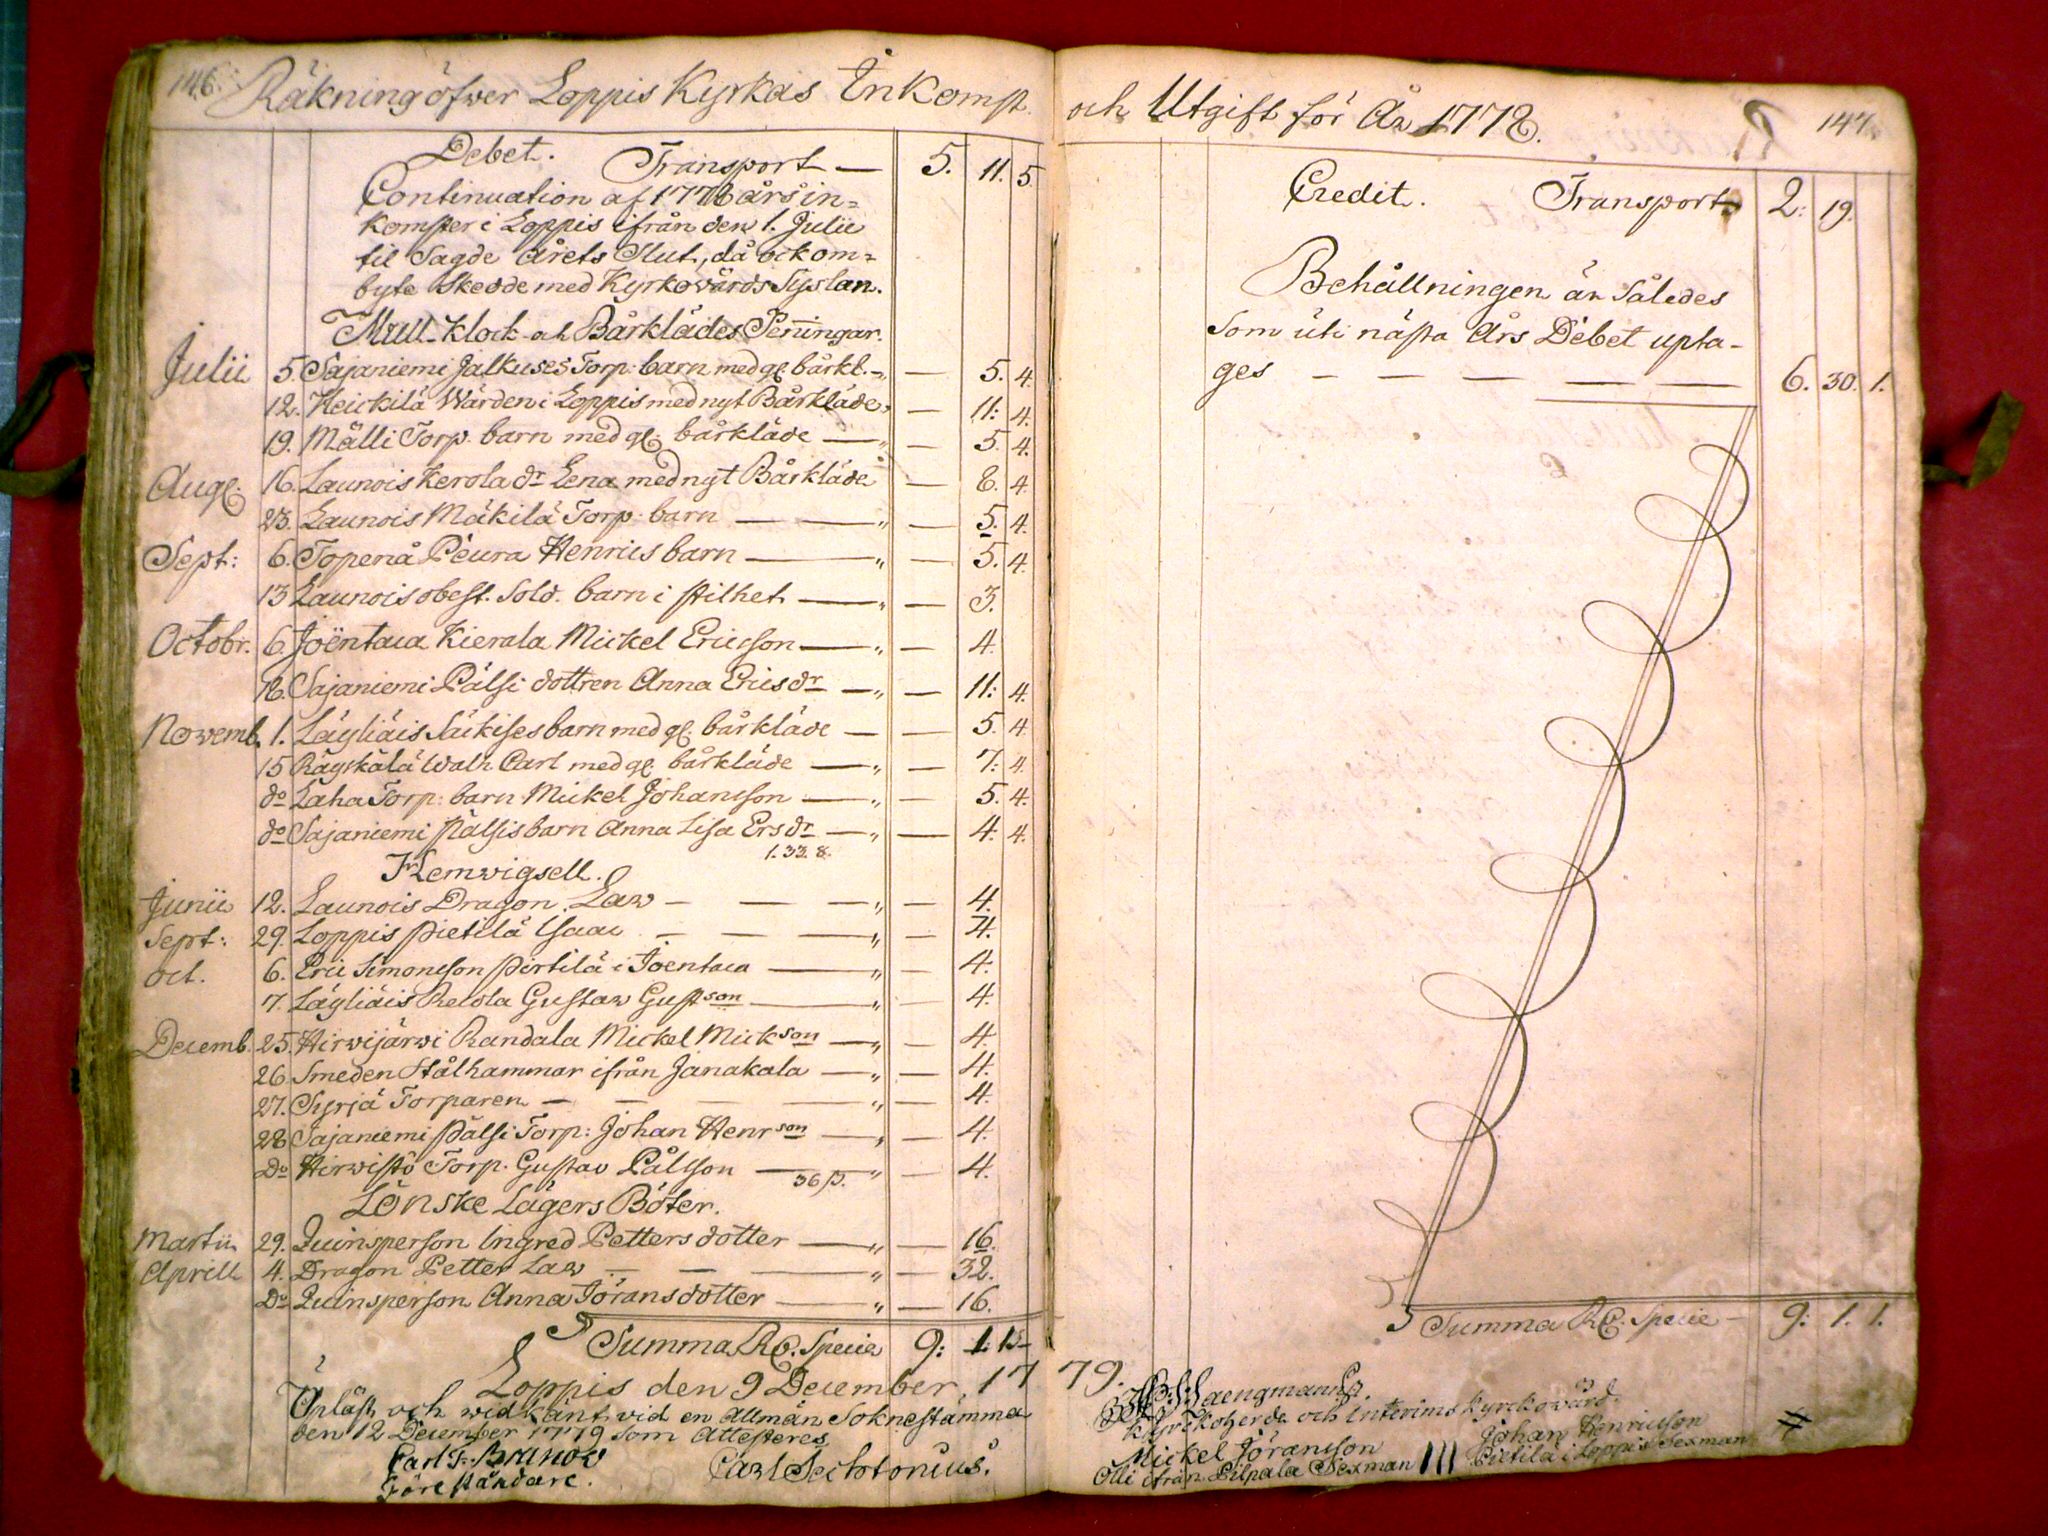 146.
Räkning öfwer Loppis Kyrkas Inkomst
Debet. Transport — 5. 11. 5
Continuation af 1778 års in=
komster i Loppis ifrån den 1. Julii
til Sagde årets Slut, då ock om=
byte skedde med Kyrkovärds Syslan.
Mull- Klock- och Bårklädes Penningar.
Julii 5. Sajaniemi Jalkuses Torp: barn med gl. bårkl. — — 5. 4.
12. Heickilä Wärden i Loppis med nyt Bårkläde — 11: 4.
19. Mälli Torp. barn med gl. bårkläde — — 5. 4.
Aug. 16. Launois Kerola dr Lena med nyt Bårkläde — 8. 4.
23. Launois Mäkilä Torp. barn — — — 5. 4.
Sept: 6. Topenå Peura Henrics barn — — 5. 4.
13 Launois obest. Sold. barn i stilhet — — 3.
Octobr. 6. Joëntaca Kierala Mickel Ericsson — — 4.
18. Sajaniemi Pälsi dottren Anna Erics dr — — 11: 4.
Novemb. 1. Läyliäis Säikises barn med gl. bårkläde — — 5. 4
15 Räyskälä Walk Carl med gl. bårkläde — — 7: 4.
do Laha Torp: barn Mickel Johansson — — 5. 4.
do Sajaniemi Pälsis barn Anna Lisa Ers dr — — 4. 4.
1. 33. 8.
Klemwigsell.
Junii 12. Launois Dragon Law — — — — 4.
Sept: 29. Loppis Pietilä Isaac — — — — 4.
Oct. 6. Eric Simonsson Pirtilä i Joentaca — — 4.
7. Läyliäis Recola Gustaw Gustson — — 4.
Decemb. 25. Hirwijärwi Randala Mickel Mickson — — 4.
26. Smeden Stålhammar ifrån Janakala — — 4.
27. Syrjä Torparen — — — — — 4.
28 Sajaniemi Pälsi Torp: Johan Henrson — — 4.
Do Hirwistö Torp. Gustav Pålsson — — 4.
36 s.
Lönske Lägers Böter.
Martii 29. Quinsperson Ingred Petters dotter — — 16.
Aprill 4. Dragon Petter Law — — — — 32.
Do Quinsperson Anna Jörans dotter — — 16.
Summa Rd. Specie 9: 1: 1
Loppis den 9 December 17
Upläst och widkänt vid en Allmän Soknestämma
den 12 December 1779 som Attesteres
Carl F. Brunow
Föreståndare.
Carl Sectorius.
och Utgift för År 1778.
147.
Credit. Transport 2: 19.
Behållningen är Således
Som uti nästa Års Debet upta-
ges — — — — — — 6. 30. 1.
Summa Rd. Specie — 9: 1. 1.
79.
Kyrkoherde och Interims Kyrckovärd.
Mickel Jöransson
Olli ifrån Pilpala Sexman
Johan Henricsson
Pietilä i Loppis Sexman